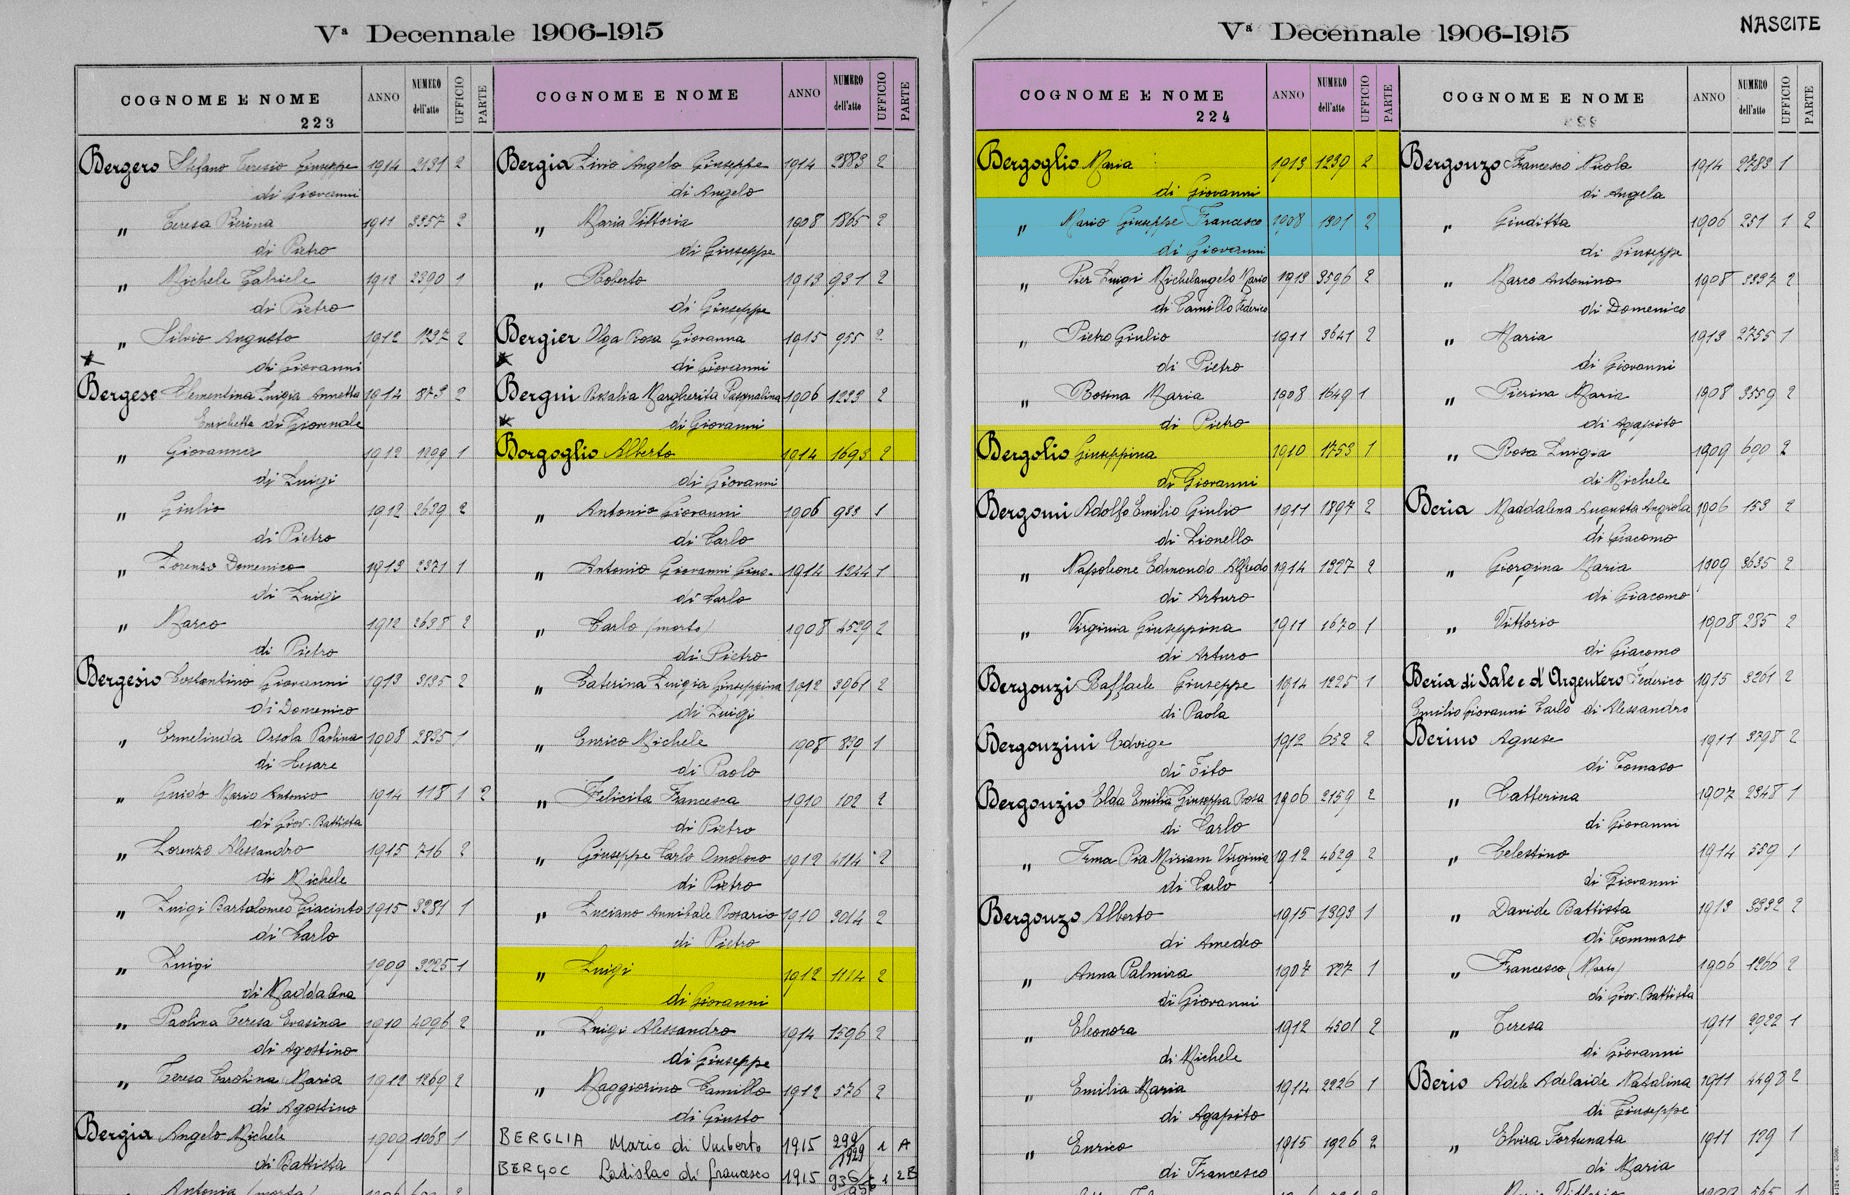 Vª Decennale 1906-1915
COGNOME E NOME
223
ANNO
NUMERO
dell'atto
UFFICIO
PARTE
Bergero Stefano Teresio Giuseppe 1914 2131 2
di Giovanni
" Teresa Pierina 1911 3357 2
di Pietro
" Michele Gabriele 1912 2390 1
di Pietro
" Silvio Augusto 1912 1237 2
di Giovanni
Bergese Clementina Luigia Annetta 1914 873 2
Enrichetta di Giovenale
" 1912 1299 1
di Luigi
" Giulio 1912 2639 2
di Pietro
" Lorenzo Domenico 1913 2371 1
di Luigi
" Marco 1912 2638 2
di Pietro
Bergesio Costantino Giovanni 1913 3135 2
di Domenico
" Ermelinda Orsola Paolina 1908 2835 1
di Cesare
" Guido Mario Antonio 1914 118 1 2
di Giov. Battista
" Lorenzo Alessandro 1915 716 2
di Michele
" Luigi Bartolomeo Giacinto 1915 3281 1
di Carlo
" Luigi 1909 3225 1
di Maddalena
" Paolina Teresa Evasina 1910 4096 2
di Agostino
" Teresa Carolina Maria 1912 1269 2
di Agostino
Bergia Angelo Michele 1909 1068 1
di Battista
Antonia (morta)
COGNOME E NOME
ANNO
NUMERO
dell'atto
UFFICIO
PARTE
Bergia Livio Angelo Giuseppe 1914 2883 2
di Angelo
" Maria Vittoria 1908 1865 2
di Giuseppe
" Roberto 1913 931 2
di Giuseppe
Bergier Olga Rosa Giovanna 1915 955 2
di Giovanni
Bergui Rosalia Margherita Pasqualina 1906 1233 2
di Giovanni
Borgoglio Alberto 1914 1693 2
di Giovanni
" Antonio Giovanni 1906 933 1
di Carlo
" Antonio Giovanni Gius. 1914 1344 1
di Carlo
" Carlo (morto) 1908 4529 2
di Pietro
" Caterina Luigia Giuseppina 1912 3961 2
di Luigi
" Enrico Michele 1908 839 1
di Paolo
" Felicita Francesca 1910 102 2
di Pietro
" Giuseppe Carlo Omobono 1912 4114 2
di Pietro
" Luciano Annibale Rosario 1910 3014 2
di Pietro
" Luigi 1912 1114 2
di Giovanni
" Luigi Alessandro 1914 1596 2
di Giuseppe
" Maggiorino Camillo 1912 576 2
di Giusto
BERGLIA Mario di Umberto 1915 299/1929 1 A
BERGOC Ladislao di francesco 1915 936/956 1 2B
Vª Decennale 1906-1915
NASCITE
COGNOME E NOME
224
ANNO
NUMERO
dell'atto
UFFICIO
PARTE
Bergoglio Maria 1913 1239 2
di Giovanni
" Mario Giuseppe Francesco 1908 1301 2
di Giovanni
" Pier Luigi Michelangelo Mario 1913 3596 2
di Camillo Federico
" Pietro Giulio 1911 3641 2
di Pietro
" Rosina Maria 1908 1649 1
di Pietro
Bergolio Giuseppina 1910 1753 1
di Giovanni
Bergomi Adolfo Emilio Giulio 1911 1897 2
di Lionello
" Napoleone Edmondo Alfredo 1914 1327 2
di Arturo
" Virginia Giuseppina 1911 1670 1
di Arturo
Bergonzi Raffaele Giuseppe 1914 1225 1
di Paola
Bergonzini Edvige 1912 652 2
di Tito
Bergonzio Elda Emilia Giuseppa Rosa 1906 2159 2
di Carlo
" Irma Pia Miriam Virginia 1912 4629 2
di Carlo
Bergonzo Alberto 1915 1393 1
di Amedeo
" Anna Palmira 1907 827 1
di Giovanni
" Eleonora 1912 4501 2
di Michele
" Emilia Maria 1914 2226 1
di Agapito
" Enrico 1915 1926 2
di Francesco
COGNOME E NOME
ANNO
NUMERO
dell'atto
UFFICIO
PARTE
Bergonzo Francesco Nicola 1914 2783 1
di Angela
" Giuditta 1906 251 1 2
di Giuseppe
" Marco Antonino 1908 3337 2
di Domenico
" Maria 1913 2755 1
di Giovanni
" Pierina Maria 1908 3559 2
di Agapito
" Rosa Luigia 1909 690 2
di Michele
Beria Maddalena Augusta Angiola 1906 153 2
di Giacomo
" Giorgina Maria 1909 3635 2
di Giacomo
" Vittorio 1908 285 2
di Giacomo
Beria di Sale e d'Argentero Federico 1915 3261 2
Emilio Giovanni Carlo di Alessandro
Berino Agnese 1911 3798 2
di Tomaso
" Catterina 1907 2348 1
di Giovanni
" Celestino 1914 559 1
di Giovanni
" Davide Battista 1913 3332 2
di Tommaso
" Francesco (Morto) 1906 1266 2
di Giov. Battista
" Teresa 1911 2922 1
di Giovanni
Berio Adele Adelaide Natalina 1911 4498 2
di Giuseppe
" Elvira Fortunata 1911 129 1
di Maria
Maria Vittoria 1909 565 1